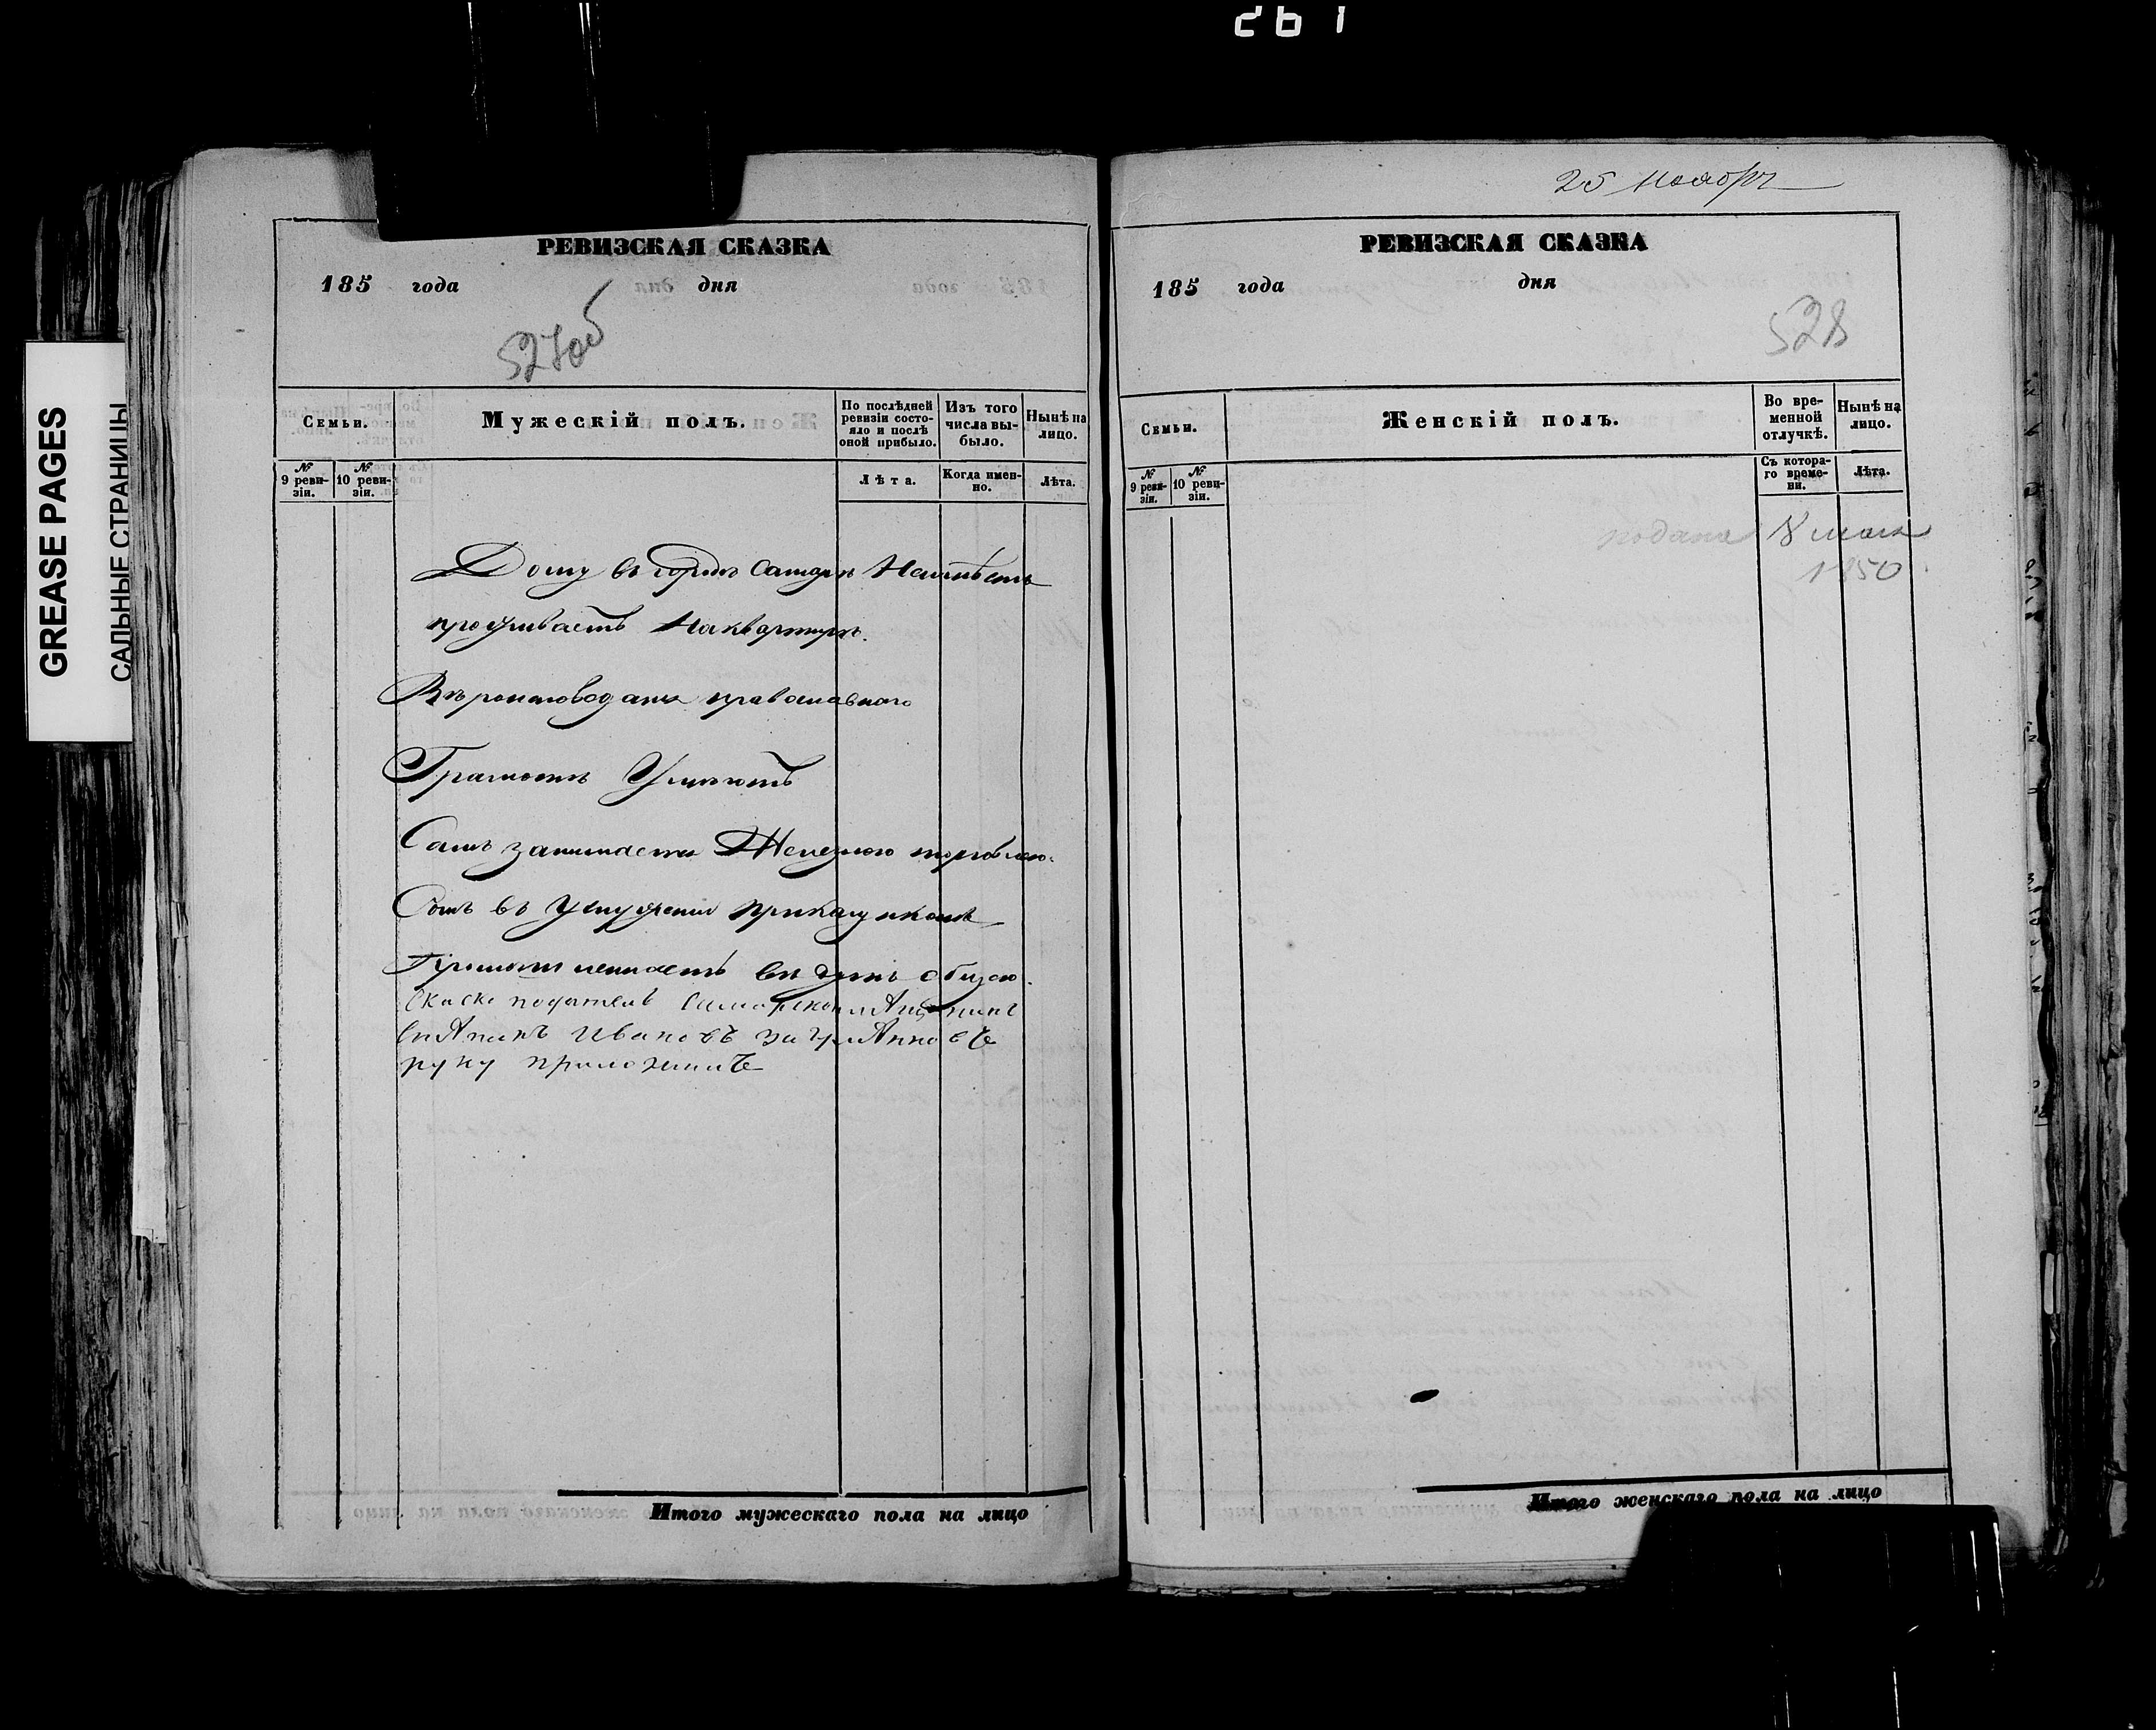 261
GREASE PAGES
САЛЬНЫЕ СТРАНИЦЫ
РЕВИЗСКАЯ СКАЗКА
185 года дня
527об
Семьи.
Мужескій полъ.
По послѣдней ревизіи состояло и послѣ оной прибыло.
Изъ того числа выбыло.
Нынѣ на лицо.
№ 9 ревизіи.
№ 10 ревизіи.
Лѣта.
Когда именно.
Лѣта.
Дому въ городѣ Самарѣ Неимѣетъ
проживаетъ Наквартирѣ.
Вѣроисповѣданія православнаго
Грамотѣ Умѣютъ
Самъ занимается торговлею.
Сынъ въ Услуженіи прикащикомъ
въ думѣ общею.
Скаске податель Самарскои мѣщанинъ
Ивановъ за
руку приложилъ
Итого мужескаго пола на лицо
25 Ноябрѧ
РЕВИЗСКАЯ СКАЗКА
185 года дня
528
Семьи.
Женскій полъ.
Во временной отлучкѣ.
Нынѣ на лицо.
№ 9 ревизіи.
№ 10 ревизіи.
Съ котораго времени.
Лѣта.
подана 8 мая
1850
Итого женскаго пола на лицо